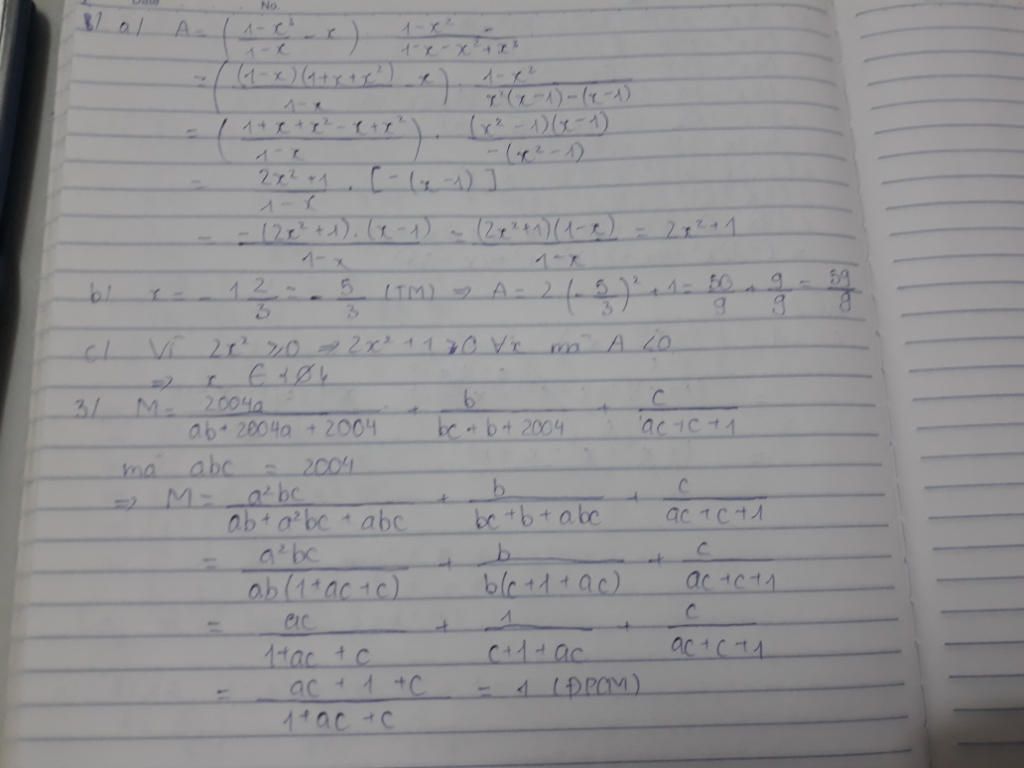 No.
8/ a/ A = ( (1-x³)/(1-x) - x ) (1-x²)/(1-x-x²+x³) =
= ( ((1-x)(1+x+x²))/(1-x) - x ) . (1-x²)/(x²(x-1)-(x-1))
= ( (1+x+x²-x+x²)/(1-x) ) . ((x²-1)(x-1))/(-(x²-1))
= (2x²+1)/(1-x) . [-(x-1)]
= (-(2x²+1).(x-1))/(1-x) = ((2x²+1)(1-x))/(1-x) = 2x²+1
b/ x = -1 2/3 = -5/3 (TM) ⇒ A = 2(-5/3)² + 1 = 50/9 + 9/9 = 59/9
c/ Vì 2x² ≥0 ⇒ 2x²+1 >0 ∀x mà A <0
⇒ x ∈ {∅}
3/ M = 2004a/(ab+2004a+2004) + b/(bc+b+2004) + c/(ac+c+1)
mà abc = 2004
⇒ M = a²bc/(ab+a²bc+abc) + b/(bc+b+abc) + c/(ac+c+1)
= a²bc/(ab(1+ac+c)) + b/(b(c+1+ac)) + c/(ac+c+1)
= ac/(1+ac+c) + 1/(c+1+ac) + c/(ac+c+1)
= (ac+1+c)/(1+ac+c) = 1 (ĐPCM)